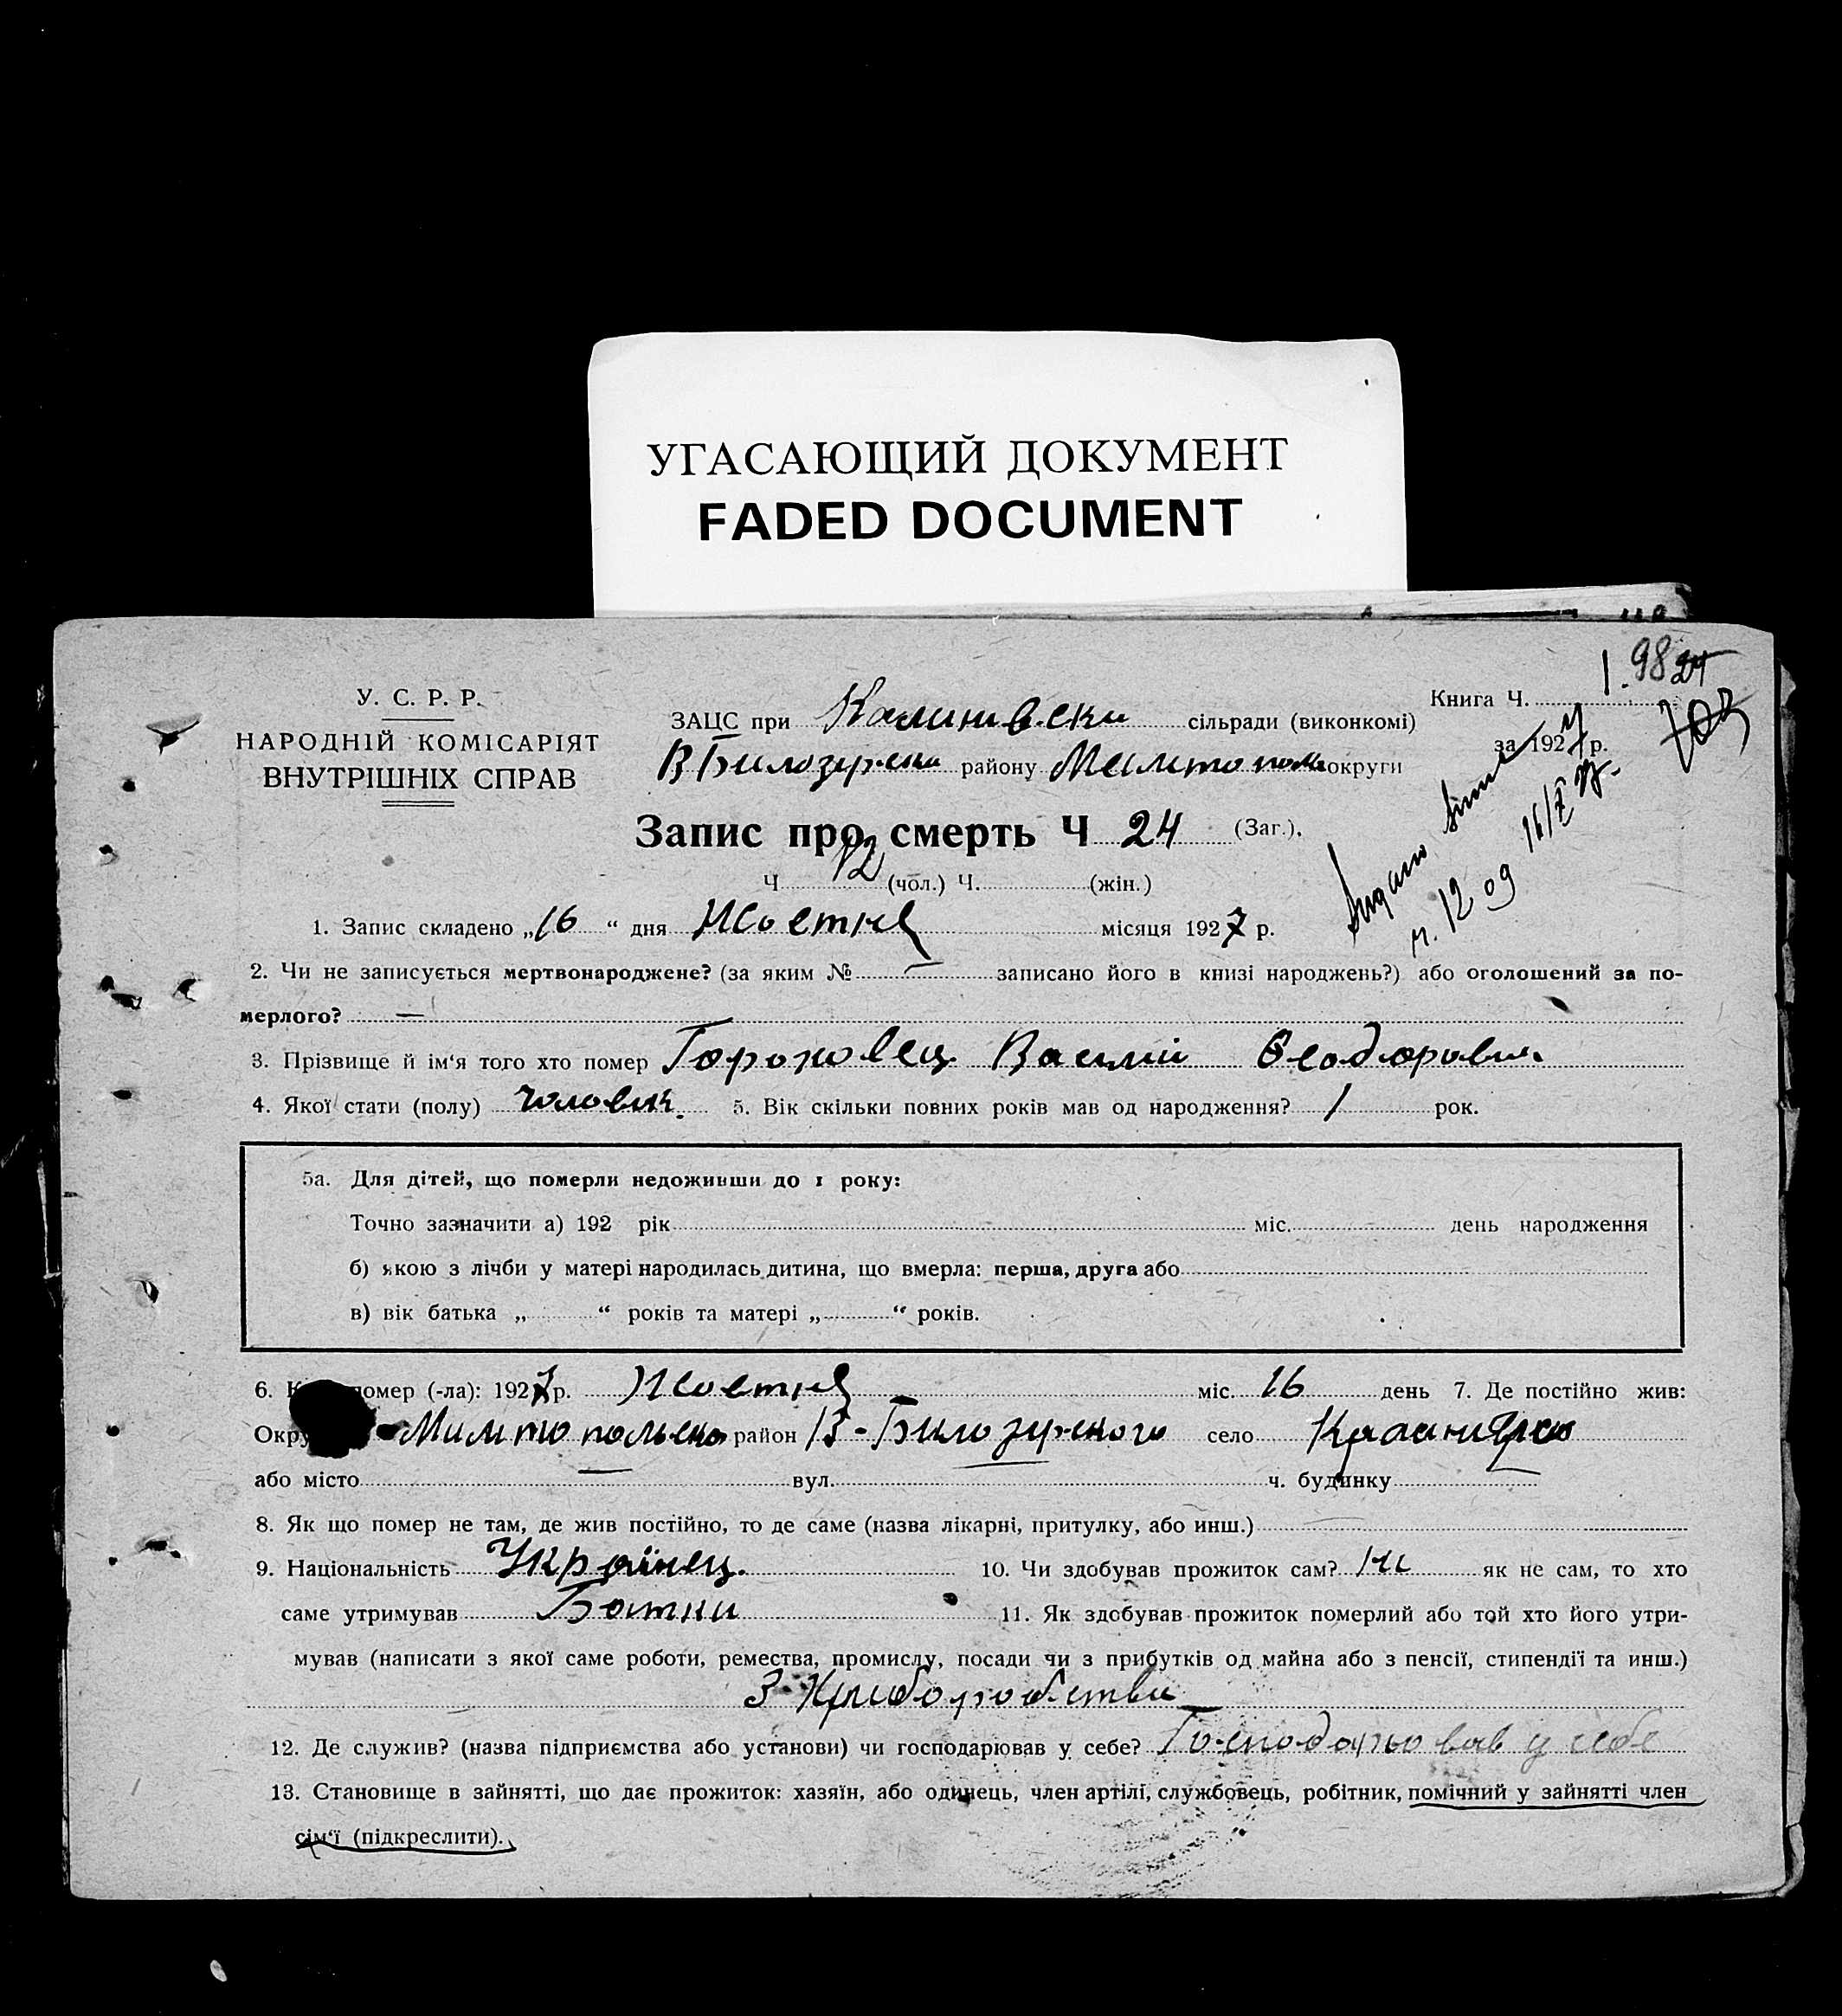 УГАСАЮЩИЙ ДОКУМЕНТ
FADED DOCUMENT
У. С. Р. Р.
НАРОДНІЙ КОМІСАРІЯТ
ВНУТРІШНІХ СПРАВ
Книга Ч. 1.98 24
за 1927 р.
703
ЗАЦС при Калинівськи сільради (виконкомі)
В Билозирски району Милитопол округи
Запис про смерть Ч 24 (Заг.).
Ч 12 (чол.) Ч. (жін.)
ч. 1209 16/X 27.
1. Запис складено „16 “ дня Жовтня місяця 1927 р.
2. Чи не записується мертвонароджене? (за яким № — записано його в книзі народжень?) або оголошений за по-
мерлого? —
3. Прізвище й ім‘я того хто помер Гороховец Василий Феодорович
4. Якої стати (полу) чоловик. 5. Вік скільки повних років мав од народження? 1 рок.
5а. Для дітей, що померли недоживши до 1 року:
Точно зазначити а) 192 рік міс. день народження
б) якою з лічби у матері народилась дитина, що вмерла: перша, друга або
в) вік батька „ “ років та матері „ “ років.
6. помер (-ла): 1927 р. Жовтня міс. 16 день 7. Де постійно жив:
Окру Милитопольско район В-Билозирского село
або місто — вул. — ч. будинку —
8. Як що помер не там, де жив постійно, то де саме (назва лікарні, притулку, або инш.)
9. Національність Украйнец. 10. Чи здобував прожиток сам? Ни як не сам, то хто
саме утримував Батки 11. Як здобував прожиток померлий або той хто його утри-
мував (написати з якої саме роботи, ремества, промислу, посади чи з прибутків од майна або з пенсії, стипендії та инш.)
З Хлиборобства
12. Де служив? (назва підприємства або установи) чи господарював у себе? Господарював у себе
13. Становище в зайнятті, що дає прожиток: хазяїн, або одинець, член артілі, службовець, робітник, помічний у зайнятті член
сім‘ї (підкреслити).